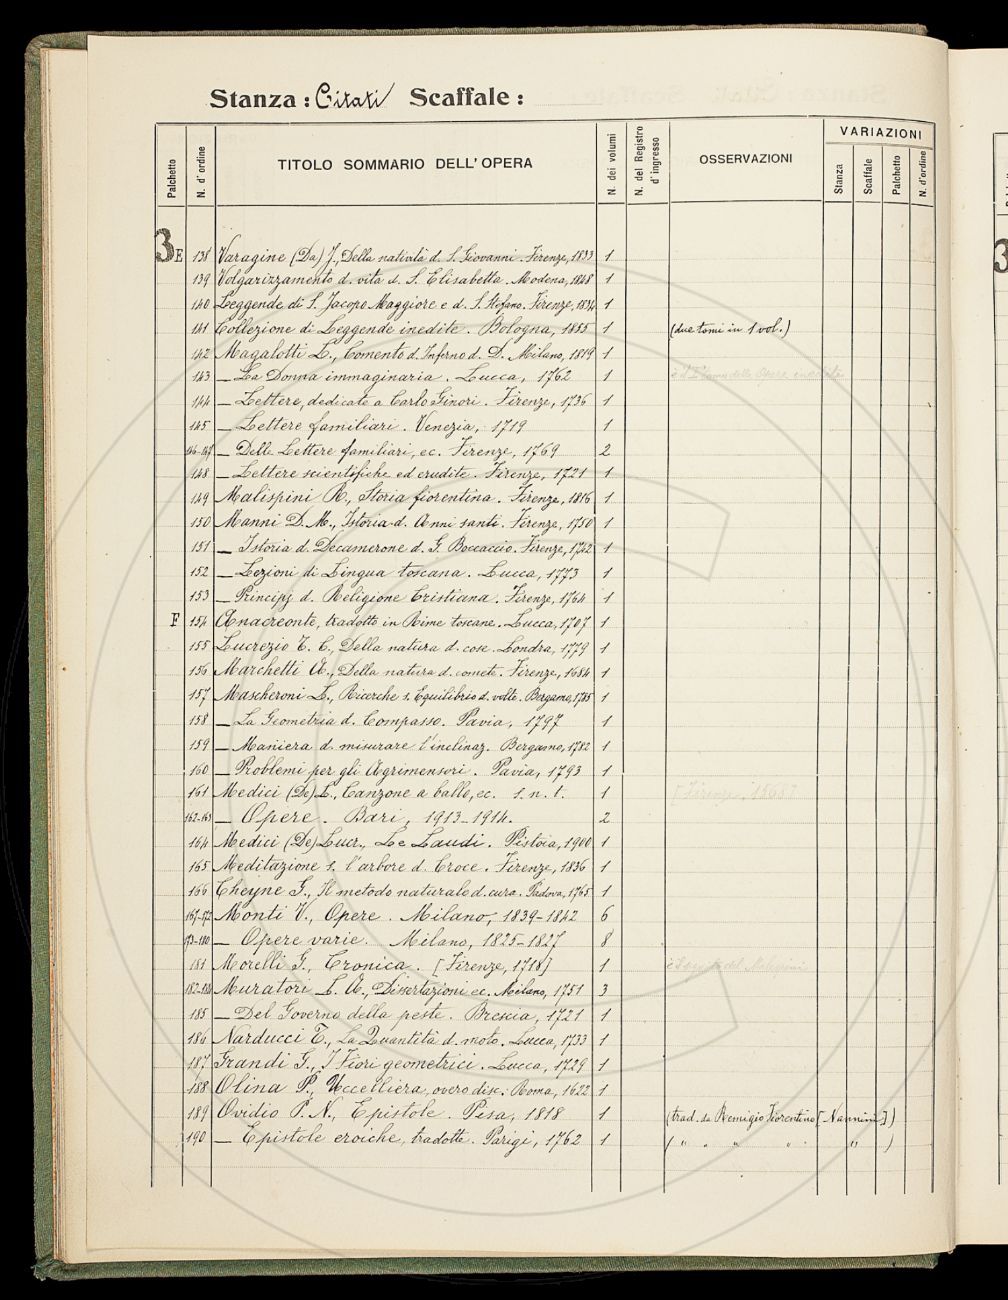 Stanza: Citati Scaffale:
Palchetto N. d'ordine TITOLO SOMMARIO DELL'OPERA N. dei volumi N. del Registro d'ingresso OSSERVAZIONI VARIAZIONI
Stanza Scaffale Palchetto N. d'ordine
3E 138 Varagine (Da) J., Della natività d. S. Giovanni. Firenze, 1833 1
139 Volgarizzamento d. vita d. S. Elisabetta. Modena, 1848 1
140 Leggende di S. Jacopo Maggiore e d. S. Stefano. Firenze, 1834 1
141 Collezione di Leggende inedite. Bologna, 1855 1 (due tomi in 1 vol.)
142 Magalotti L., Comento d. Inferno d. D. Milano, 1819 1
143 — La Donna immaginaria. Lucca, 1762 1 delle Opere
144 — Lettere, dedicate a Carlo Ginori. Firenze, 1736 1
145 — Lettere familiari. Venezia, 1719 1
146-147 — Delle Lettere familiari, ec. Firenze, 1769 2
148 — Lettere scientifiche ed erudite. Firenze, 1721 1
149 Malispini R., Storia fiorentina. Firenze, 1816 1
150 Manni D. M., Istoria d. Anni santi. Firenze, 1750 1
151 — Istoria d. Decamerone d. G. Boccaccio. Firenze, 1742 1
152 — Lezioni di Lingua toscana. Lucca, 1773 1
153 — Principj d. Religione Cristiana. Firenze, 1764 1
F 154 Anacreonte, tradotto in Rime toscane. Lucca, 1707 1
155 Lucrezio T. C., Della natura d. cose. Londra, 1779 1
156 Marchetti A., Della natura d. comete. Firenze, 1684 1
157 Mascheroni L., Ricerche s. Equilibrio d. volte. Bergamo, 1785 1
158 — La Geometria d. Compasso. Pavia, 1797 1
159 — Maniera d. misurare l'inclinaz. Bergamo, 1782 1
160 — Problemi per gli Agrimensori. Pavia, 1793 1
161 Medici (De) L., Canzone a ballo, ec. s. n. t. 1 [Firenze, 1568]
162-163 — Opere. Bari, 1913-1914. 2
164 Medici (De) Lucr., Le Laudi. Pistoia, 1900 1
165 Meditazione s. l'arbore d. Croce. Firenze, 1836 1
166 Cheyne G., Il metodo naturale d. cura. Padova, 1765 1
167-172 Monti V., Opere. Milano, 1839-1842 6
173-180 — Opere varie. Milano, 1825-1827 8
181 Morelli G., Cronica. [Firenze, 1718] 1 del Malispini
182-184 Muratori L. A., Dissertazioni ec. Milano, 1751 3
185 — Del Governo della peste. Brescia, 1721 1
186 Narducci T., La Quantità d. moto. Lucca, 1733 1
187 Grandi G., I Fiori geometrici. Lucca, 1729 1
188 Olina P., Uccelliera, overo disc. Roma, 1622 1
189 Ovidio P. N., Epistole. Pisa, 1818 1 (trad. da Remigio Fiorentino [Nannini])
190 — Epistole eroiche, tradotte. Parigi, 1762 1 ( " " " " " )
3